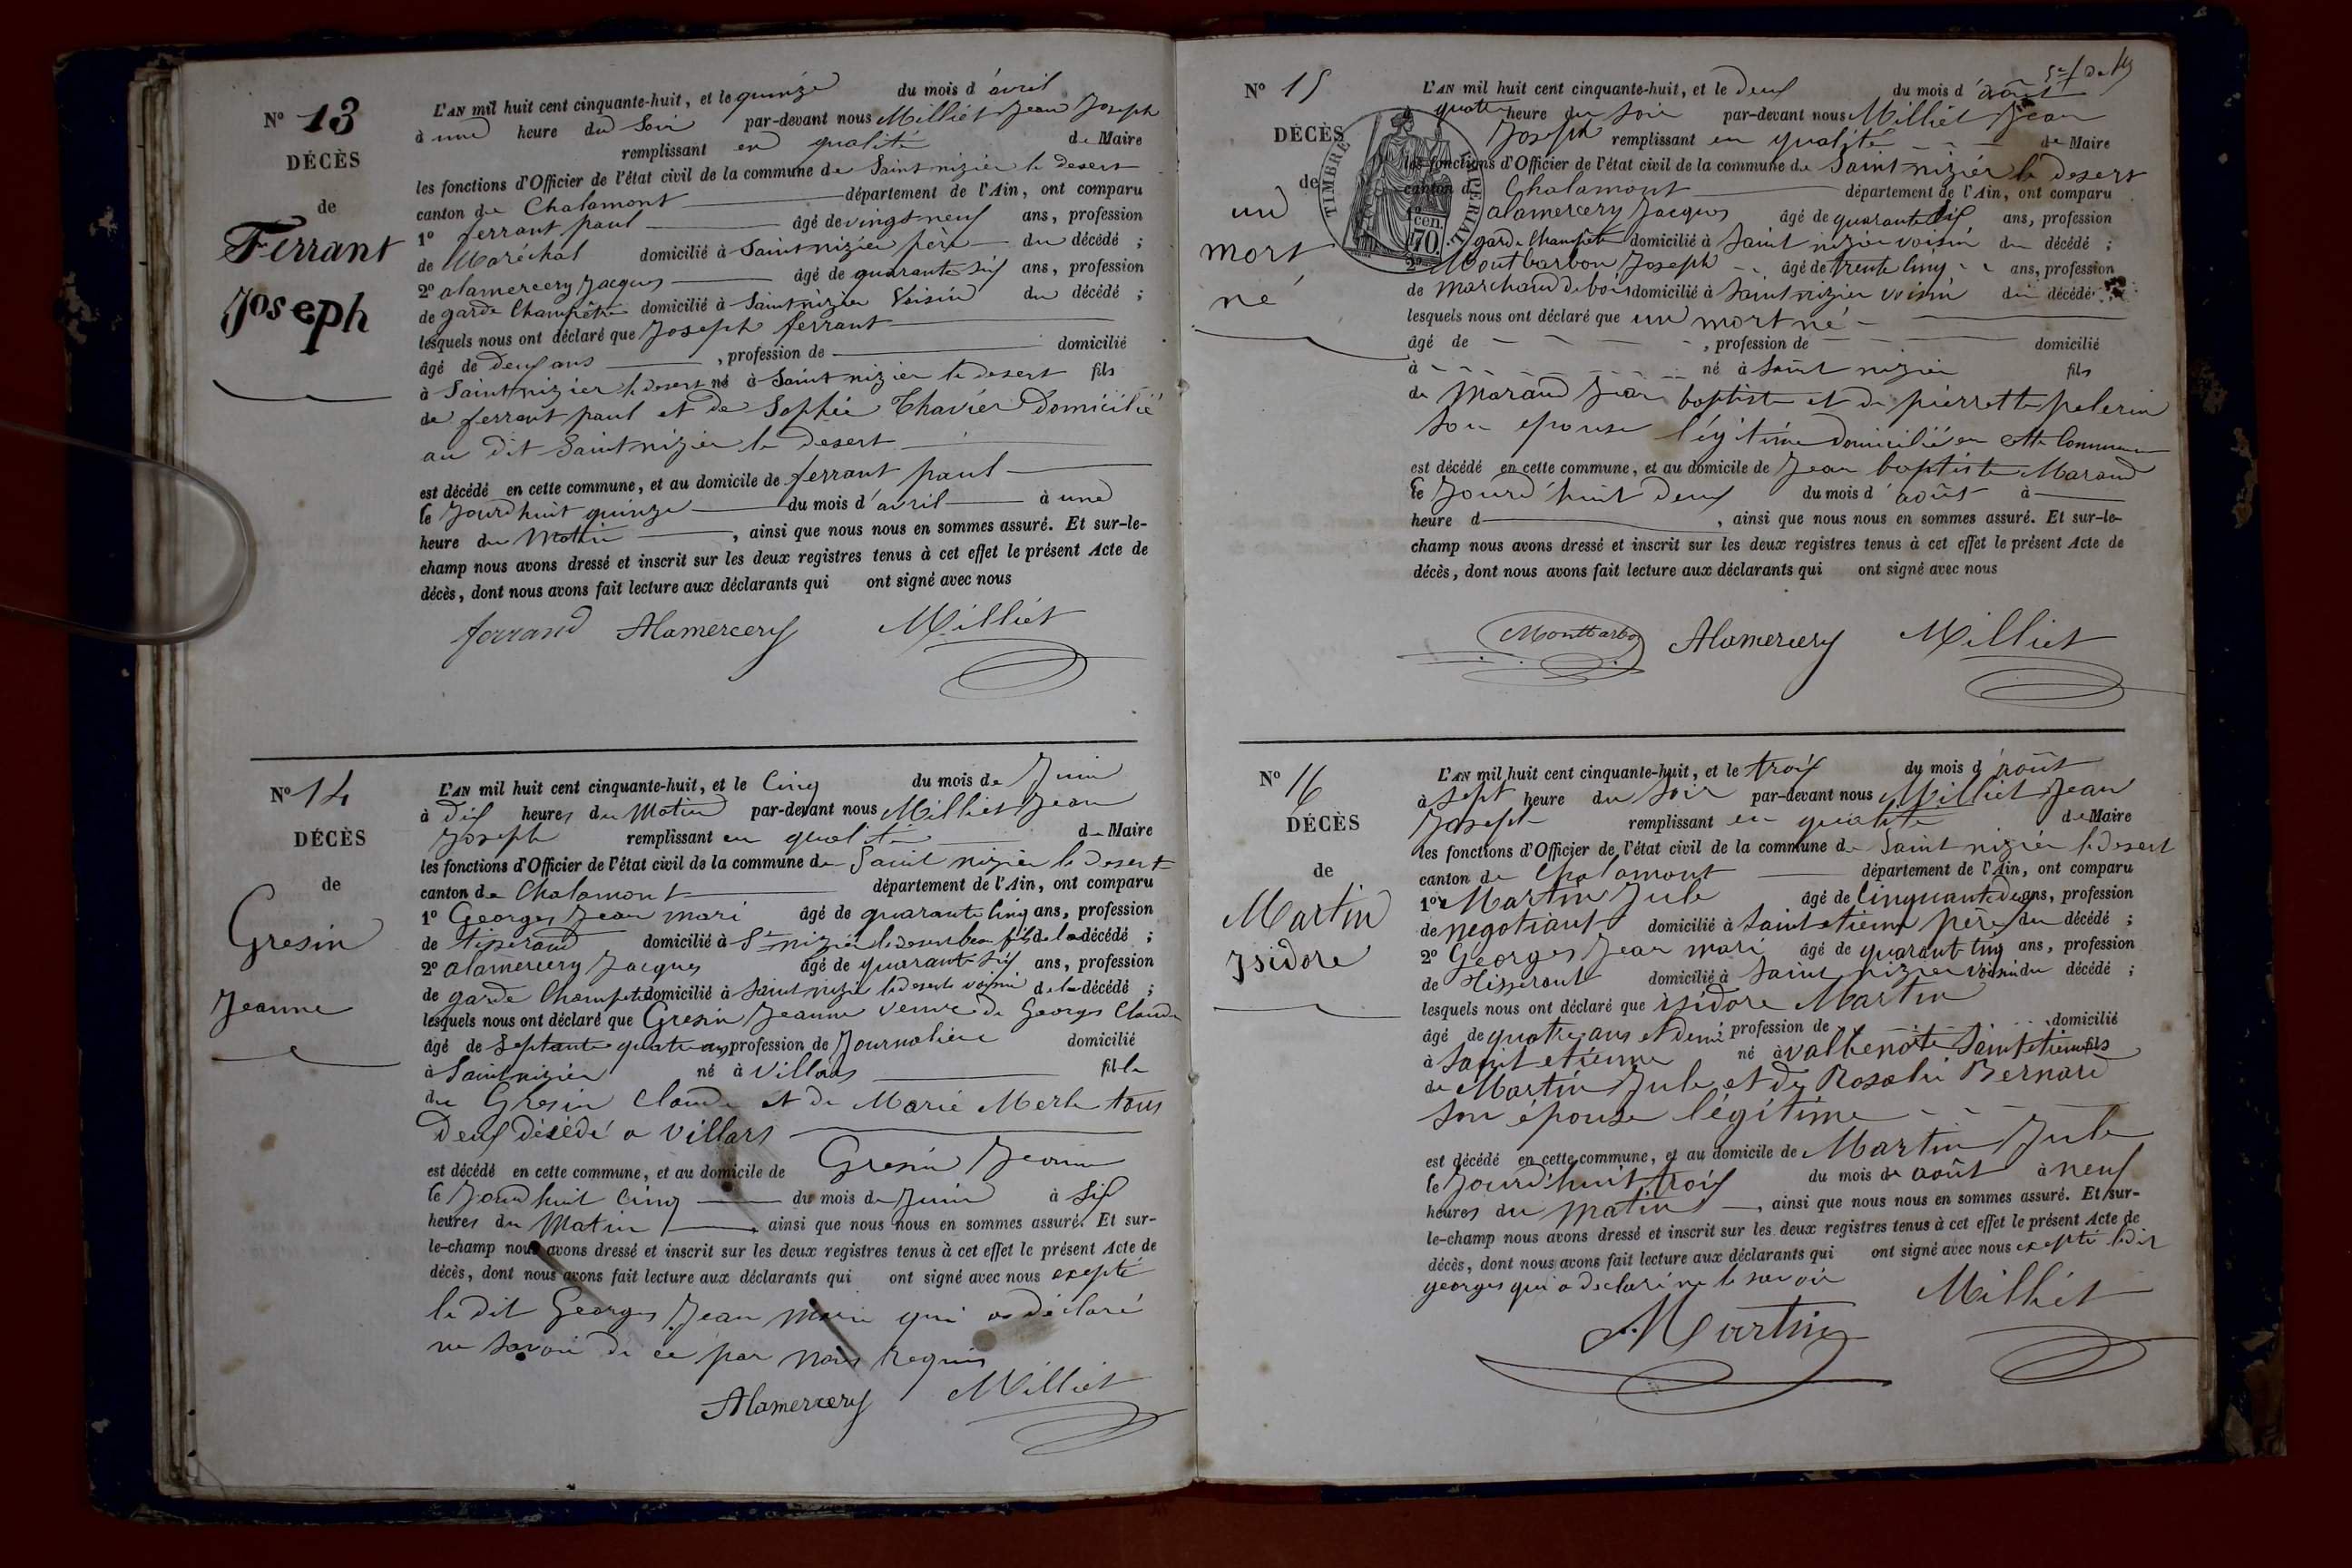 N° 13
DÉCÈS
de
Ferrant
Joseph
L'AN mil huit cent cinquante-huit, et le quinze du mois d'avril
à une heure du Soir par-devant nous Milliet Jean Joseph
remplissant en qualité de Maire
les fonctions d'Officier de l'état civil de la commune de Saint nizier le desert
canton de Chalamont département de l'Ain, ont comparu
1° ferrant paul âgé de vingt neuf ans, profession
de Maréchal domicilié à Saint nizier père du décédé ;
2° alamercery Jacques âgé de quarante six ans, profession
de garde Champêtre domicilié à Saint nizier Voisin du décédé ;
lesquels nous ont déclaré que Joseph ferrant
âgé de deux ans , profession de domicilié
à Saint nizier le desert né à Saint nizier le desert fils
de ferrant paul et de Sophie Thavier Domicilié
au dit Saint nizier le desert
est décédé en cette commune, et au domicile de ferrant paul
le Jourdhuit quinze du mois d'avril à une
heure du Matin , ainsi que nous nous en sommes assuré. Et sur-le-
champ nous avons dressé et inscrit sur les deux registres tenus à cet effet le présent Acte de
décès, dont nous avons fait lecture aux déclarants qui ont signé avec nous
ferrand Alamercery Milliet
N° 14
DÉCÈS
de
Gresin
Jeanne
L'AN mil huit cent cinquante-huit, et le Cinq du mois de Juin
à Dix heures du Matin par-devant nous Milliet Jean
Joseph remplissant en qualité de Maire
les fonctions d'Officier de l'état civil de la commune de Saint nizier le desert
canton de Chalamont département de l'Ain, ont comparu
1° Georges Jean mari âgé de quarante Cinq ans, profession
de tisserand domicilié à St nizier le desert beau fils de la décédé ;
2° alamercery Jacques âgé de quarante six ans, profession
de garde Champetre domicilié à Saint nizie le desert voisin de la décédé ;
lesquels nous ont déclaré que Gresin Jeanne Veuve de Georges Claude
âgé de Septante quatre ans profession de Journalière domicilié
à Saint nizier né à Villars fille
de Gresin Claude et de Marie Merle tous
Deux décédé a Villars
est décédé en cette commune, et au domicile de Gresin Jeanne
le Jourdhuit Cinq du mois de Juin à Six
heures du Matin , ainsi que nous nous en sommes assuré. Et sur-
le-champ nous avons dressé et inscrit sur les deux registres tenus à cet effet le présent Acte de
décès, dont nous avons fait lecture aux déclarants qui ont signé avec nous exepté
le dit Georges Jean Marie qui a déclaré
ne savoir de ce par nous Requis
Alamercery Milliet
N° 15
DÉCÈS
de
un
mort
né
L'AN mil huit cent cinquante-huit, et le Deux du mois d'août
à quatre heure du Soir par-devant nous Milliet Jean
Joseph remplissant en qualité de Maire
les fonctions d'Officier de l'état civil de la commune de Saint nizier le desert
canton de Chalamont département de l'Ain, ont comparu
TIMBRE IMPERIAL
70 cen.
alamercery Jacques âgé de quarante six ans, profession
garde Champêtre domicilié à Saint nizier voisin du décédé ;
2° Montbarbon Joseph âgé de trente Cinq ans, profession
de marchand de bois domicilié à Saint nizier voisin du décédé
lesquels nous ont déclaré que un mort né
âgé de , profession de domicilié
à né à Saint nizier fils
de Marand Jean baptiste et de pierrette pelerin
son épouse légitime Domicilié en cette Commune
est décédé en cette commune, et au domicile de Jean baptiste Marand
le Jourd'huit deux du mois d'août à
heure d , ainsi que nous nous en sommes assuré. Et sur-le-
champ nous avons dressé et inscrit sur les deux registres tenus à cet effet le présent Acte de
décès, dont nous avons fait lecture aux déclarants qui ont signé avec nous
Montbarbon Alamercery Milliet
N° 16
DÉCÈS
de
Martin
Isidore
L'AN mil huit cent cinquante-huit, et le trois du mois d'août
à Sept heure du Soir par-devant nous Milliet Jean
Joseph remplissant en qualité de Maire
les fonctions d'Officier de l'état civil de la commune de Saint nizier le desert
canton de Chalamont département de l'Ain, ont comparu
1° Martin Jule âgé de Cinquante deux ans, profession
de negotiant domicilié à Saint etienne père du décédé ;
2° Georges Jean mari âgé de quarante Cinq ans, profession
de Tisserant domicilié à Saint nizier voisin du décédé ;
lesquels nous ont déclaré que isidore Martin
âgé de quatre ans et demi profession de domicilié
à Saint etienne né à valbenoite Saint etienne fils
de Martin Jule et de Rosalie Bernard
son épouse légitime
est décédé en cette commune, et au domicile de Martin Jule
le Jourd'huit trois du mois de août à neuf
heures du matin , ainsi que nous nous en sommes assuré. Et sur-
le-champ nous avons dressé et inscrit sur les deux registres tenus à cet effet le présent Acte de
décès, dont nous avons fait lecture aux déclarants qui ont signé avec nous exepté ledit
georges qui a declaré ne le savoir
Martin Milliet